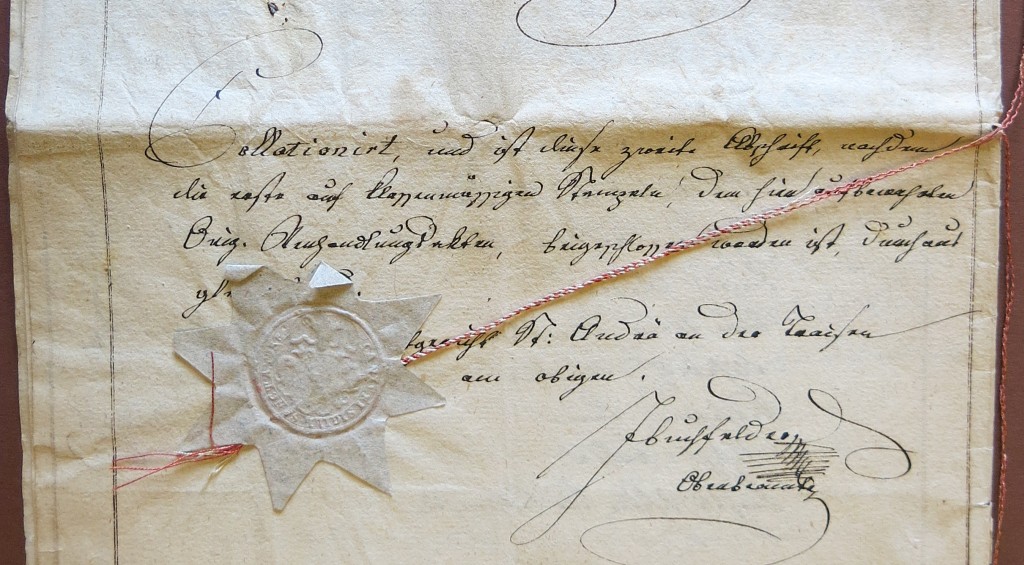 Collationirt, und ist diese zweite Abschrift, nachdem
die erste auf klassenmässigen Stempeln, den hier aufbewahrten
Orig. Verhandlungsakten, beigeschlossen worden ist, durchaus
gl
St: Andrä an der Traisen
am obigen.
Oberbeamte